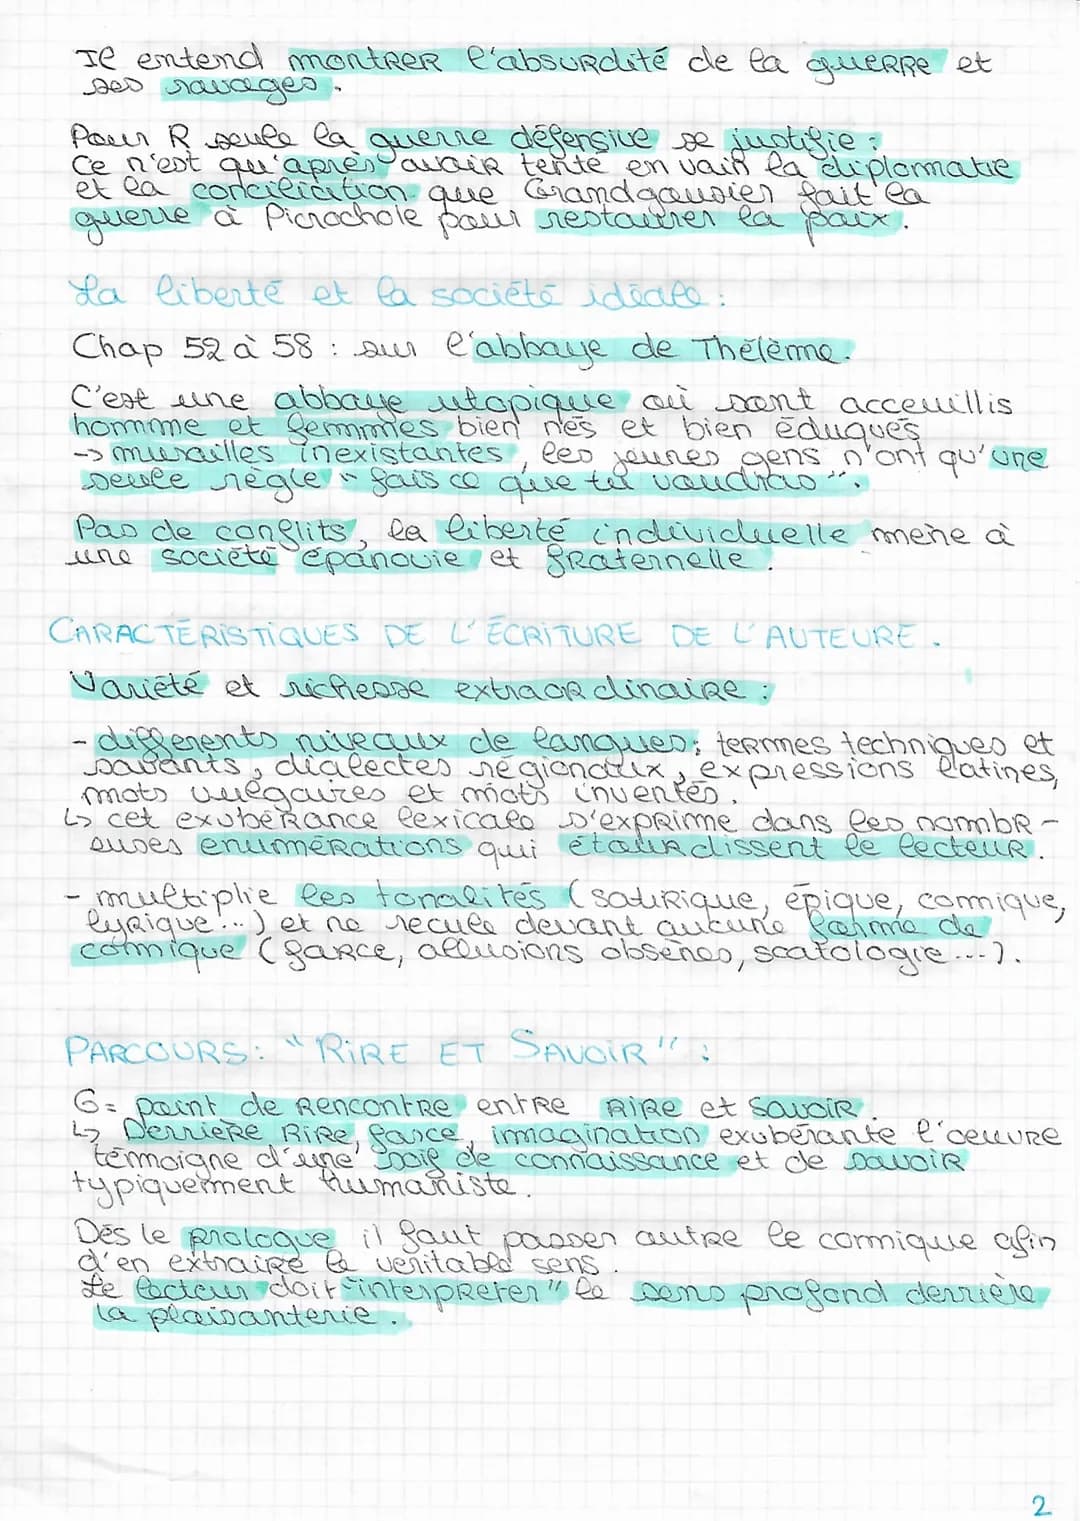 Il entend montrer l'absurdité de la guerre et
ses ravages.
Pour R seule la guerre défensive se justifie :
Ce n'est qu'après avoir tenté en vain la diplomatie
et la conciliation que Grandgousier fait la
guerre à Picrochole pour restaurer la paix.
La liberté et la société idéale :
Chap 52 à 58 : sur l'abbaye de Thélème.
C'est une abbaye utopique où sont acceuillis
homme et femmes bien nés et bien éduqués
-> murailles inexistantes, les jeunes gens n'ont qu'une
seule règle "fais ce que tu voudras".
Pas de conflits, la liberté individuelle mène à
une société épanouie et fraternelle.
CARACTÉRISTIQUES DE L'ÉCRITURE DE L'AUTEURE.
Variété et richesse extraordinaire :
- différents niveaux de langues; termes techniques et
savants, dialectes régionaux, expressions latines,
mots vulgaires et mots inventés.
↳ cet exubérance lexicale s'exprime dans les nombr-
euses enumérations qui étourdissent le lecteur.
- multiplie les tonalités (satirique, épique, comique,
lyrique...) et ne recule devant aucune forme de
comique (farce, allusions obsènes, scatologie...).
PARCOURS: "RIRE ET SAVOIR" :
G= point de rencontre entre rire et savoir.
↳ Derrière rire, farce, imagination exubérante l'oeuvre
témoigne d'une soif de connaissance et de savoir
typiquement humaniste.
Dès le prologue il faut passer outre le comique afin
d'en extraire le veritable sens.
Le lecteur doit "interpreter" le sens profond derrière
la plaisanterie.
2